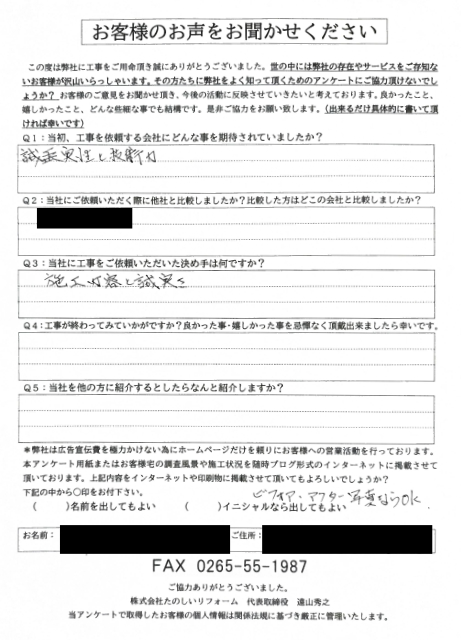 お客様のお声をお聞かせください
この度は弊社に工事をご用命頂き誠にありがとうございました。世の中には弊社の存在やサービスをご存知ない
お客様が沢山いらっしゃいます。その方たちに弊社をよく知って頂くためのアンケートにご協力頂けないでし
ょうか？お客様のご意見をお聞かせ頂き、今後の活動に反映させていきたいと考えております。良かったこと、
嬉しかったこと、どんな些細な事でも結構です。是非ご協力をお願い致します。（出来るだけ具体的に書いて頂
ければ幸いです）
Q1：当初、工事を依頼する会社にどんな事を期待されていましたか？
誠実性と
Q2：当社にご依頼いただく際に他社と比較しましたか？比較した方はどこの会社と比較しましたか？
Q3：当社に工事をご依頼いただいた決め手は何ですか？
施工内容と誠実さ
Q4：工事が終わってみていかがですか？良かった事・嬉しかった事を忌憚なく頂戴出来ましたら幸いです。
Q5：当社を他の方に紹介するとしたらなんと紹介しますか？
＊弊社は広告宣伝費を極力かけない為にホームページだけを頼りにお客様への営業活動を行っております。
本アンケート用紙またはお客様宅の調査風景や施工状況を随時ブログ形式のインターネットに掲載させて
頂いております。上記内容をインターネットや印刷物に掲載させて頂いてもよろしいでしょうか？
下記の中から〇印をお付下さい。
ビフォア・アフター写真ならOK
（　　）名前を出してもよい　　（　　）イニシャルなら出してもよい
お名前：　　ご住所：
FAX 0265-55-1987
ご協力ありがとうございました。
株式会社たのしいリフォーム　代表取締役　遠山秀之
当アンケートで取得したお客様の個人情報は関係法規に基づき厳正に管理いたします。